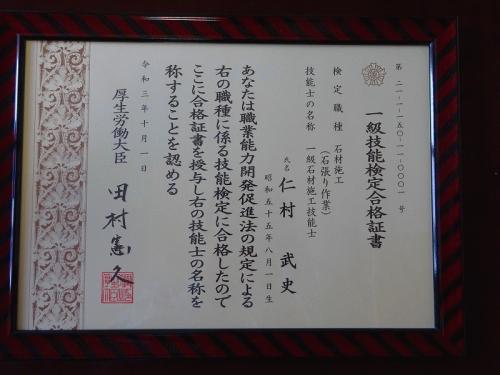 第二一-一-一五〇-一一-〇〇〇一号
一級技能検定合格証書
検定職種 石材施工
（石張り作業）
技能士の名称 一級石材施工技能士
氏名 仁村 武史
昭和五十五年八月一日生
あなたは職業能力開発促進法の規定による
右の職種に係る技能検定に合格したので
ここに合格証書を授与し右の技能士の名称を
称することを認める
令和三年十月一日
厚生労働大臣 田村憲久